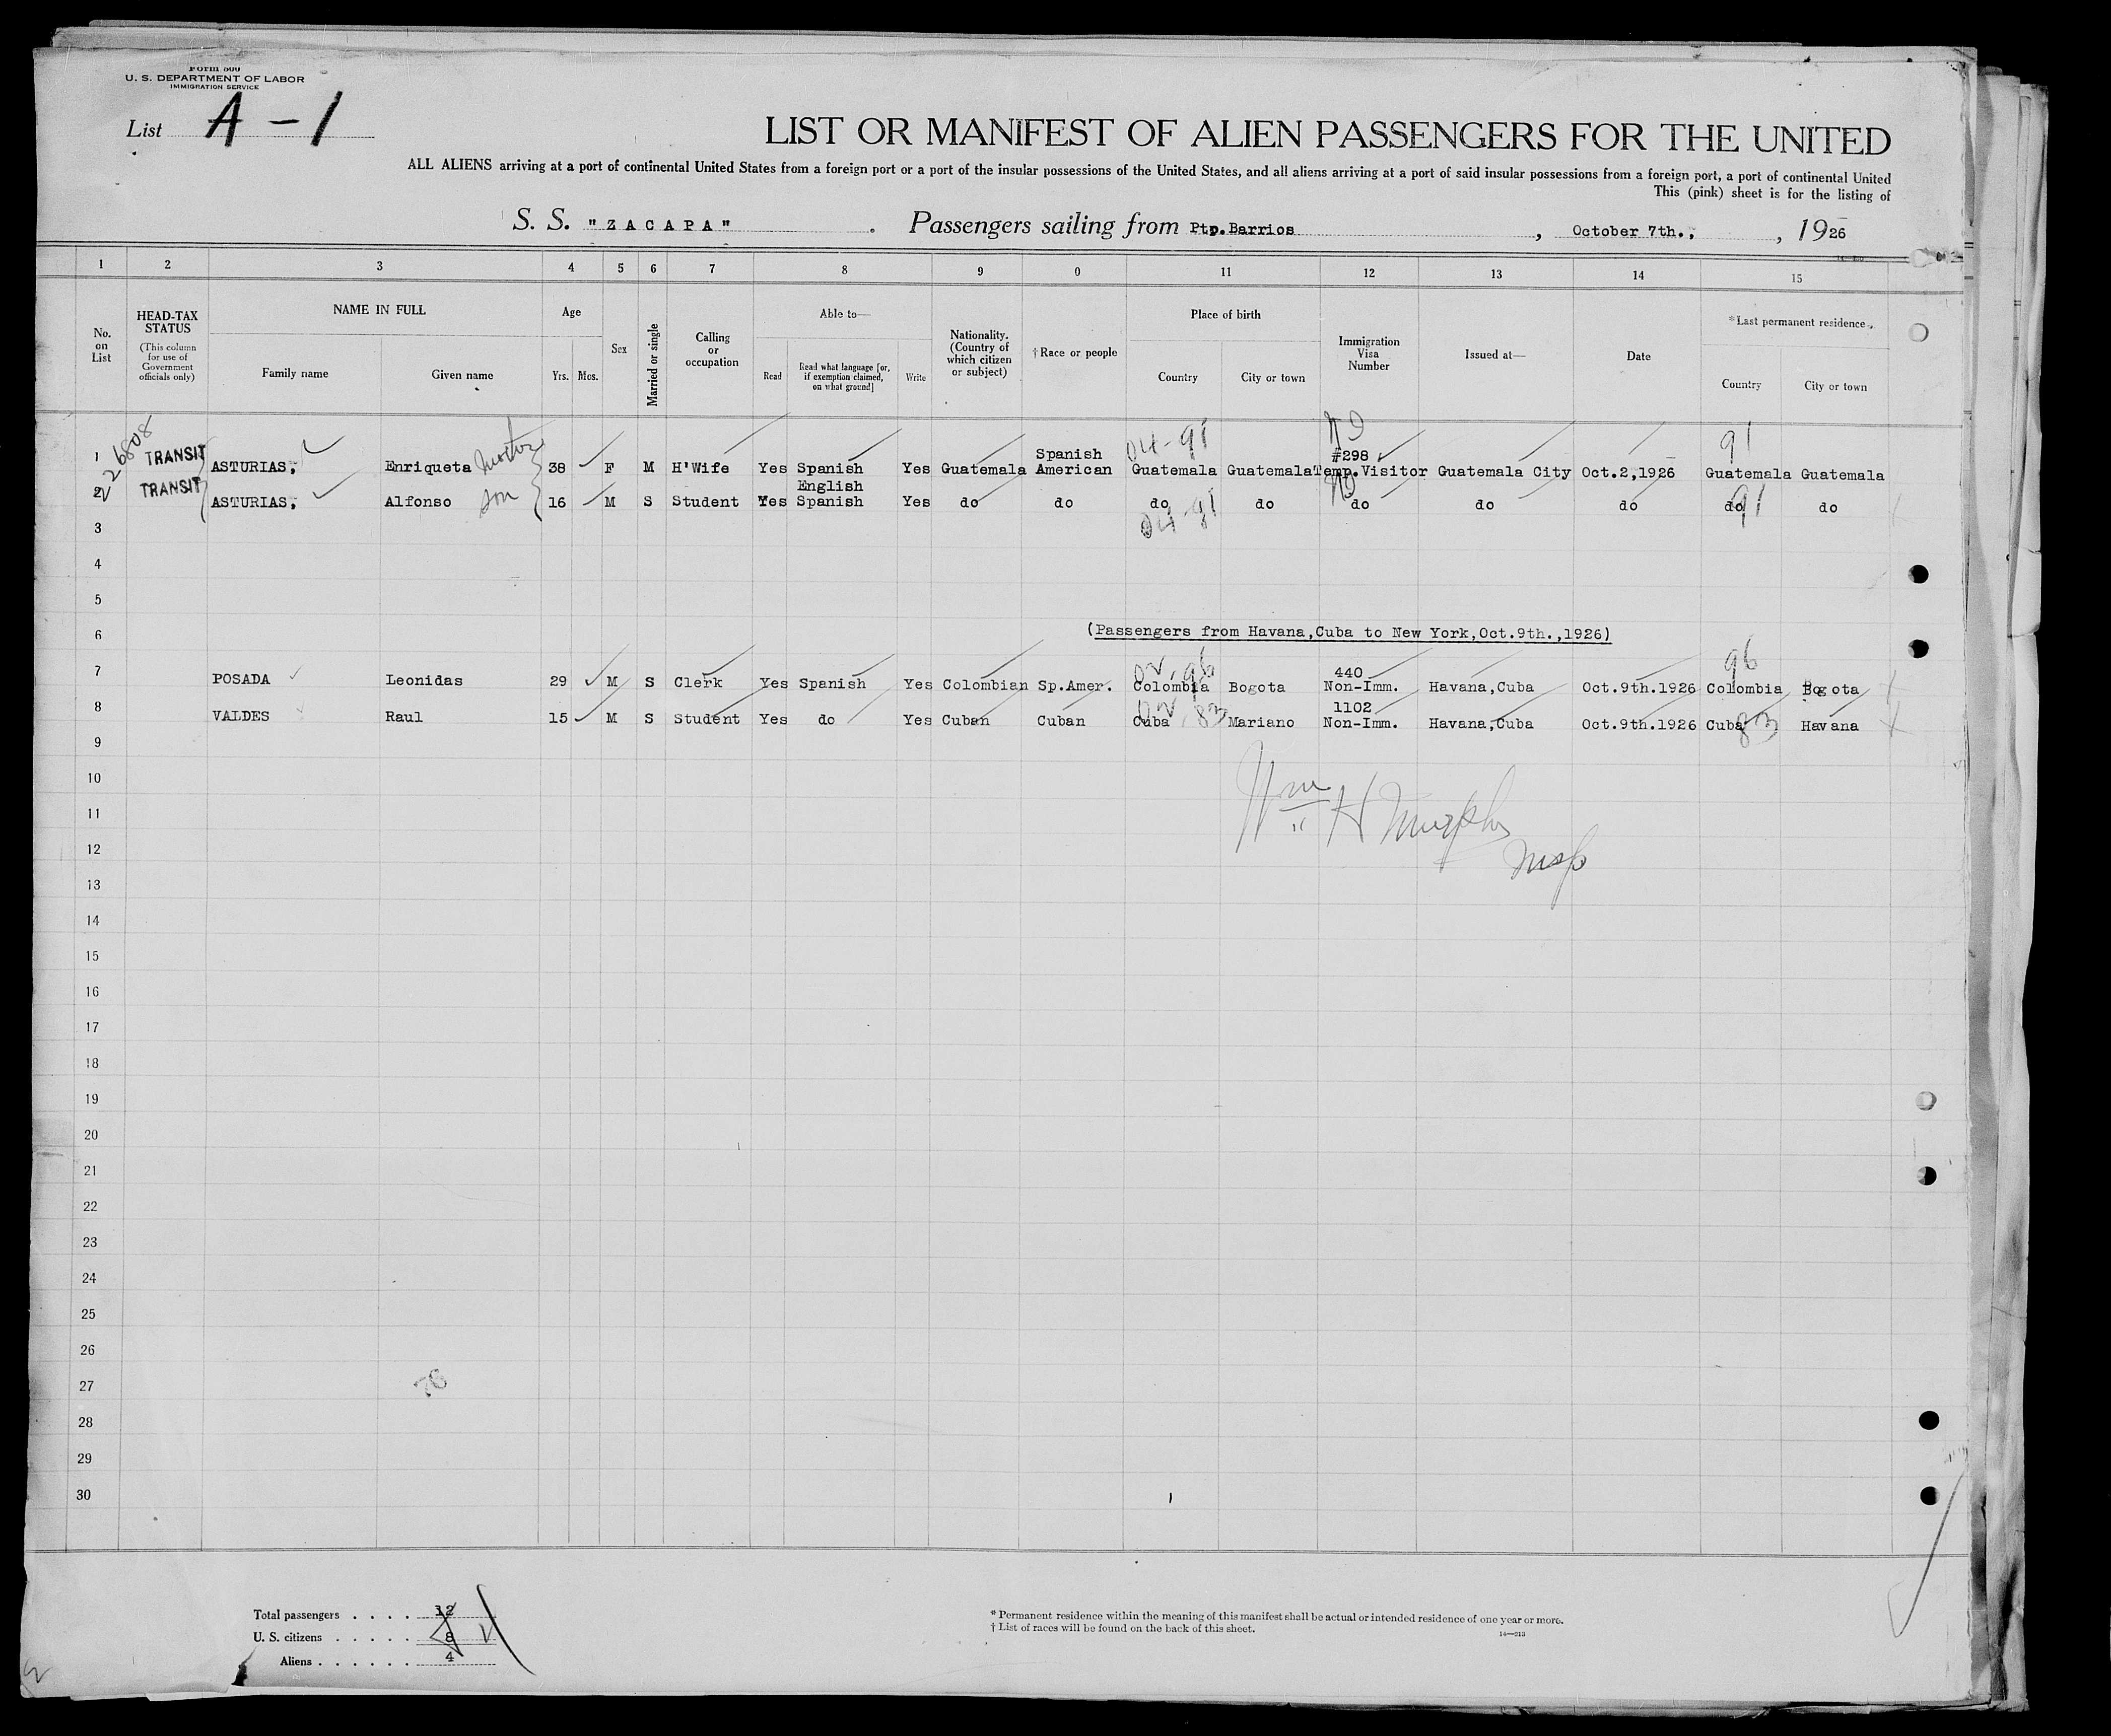 Form 500
U. S. DEPARTMENT OF LABOR
IMMIGRATION SERVICE
List A-1
LIST OR MANIFEST OF ALIEN PASSENGERS FOR THE UNITED
ALL ALIENS arriving at a port of continental United States from a foreign port or a port of the insular possessions of the United States, and all aliens arriving at a port of said insular possessions from a foreign port, a port of continental United
This (pink) sheet is for the listing of
S. S. "ZACAPA" . Passengers sailing from Pto.Barrios , October 7th., , 1926
1 2 3 4 5 6 7 8 9 0 11 12 13 14 15
No. on List
HEAD-TAX STATUS (This column for use of Government officials only)
NAME IN FULL
Family name Given name
Age
Yrs. Mos.
Sex
Married or single
Calling or occupation
Able to—
Read Read what language [or, if exemption claimed, on what ground] Write
Nationality. (Country of which citizen or subject)
†Race or people
Place of birth
Country City or town
Immigration Visa Number
Issued at—
Date
*Last permanent residence.
Country City or town
226808
04-91 ND 91
1 TRANSIT ASTURIAS, Enriqueta mother 38 F M H'Wife Yes Spanish Yes Guatemala Spanish American Guatemala Guatemala #298 Temp.Visitor Guatemala City Oct.2,1926 Guatemala Guatemala
2 TRANSIT ASTURIAS, Alfonso son 16 M S Student Yes English Spanish Yes do do do do ND do do do do 91 do
04-91
3
4
5
6 (Passengers from Havana,Cuba to New York,Oct.9th.,1926)
02,96 96
7 POSADA Leonidas 29 M S Clerk Yes Spanish Yes Colombian Sp.Amer. Colombia Bogota 440 Non-Imm. Havana,Cuba Oct.9th.1926 Colombia Bogota
8 VALDES Raul 15 M S Student Yes do Yes Cuban Cuban Cuba 02,83 Mariano 1102 Non-Imm. Havana,Cuba Oct.9th.1926 Cuba 83 Havana
9
10
11 Wm H Murphy
12 Insp
13
14
15
16
17
18
19
20
21
22
23
24
25
26
27
28
29
30
Total passengers . . . . 12
U. S. citizens . . . . . 8
Aliens . . . . . . 4
* Permanent residence within the meaning of this manifest shall be actual or intended residence of one year or more.
† List of races will be found on the back of this sheet.
14—213